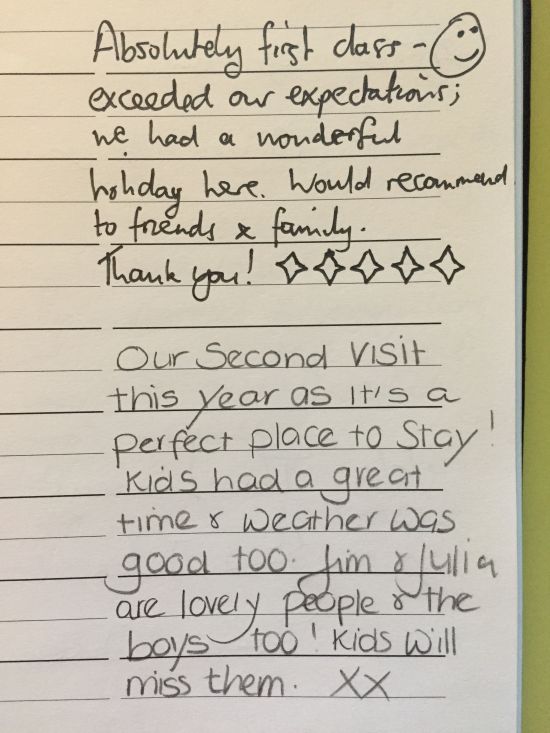 Absolutely first class -
exceeded our expectations;
we had a wonderful
holiday here. Would recommend
to friends & family.
Thank you!
Our Second Visit
this year as it's a
perfect place to Stay!
Kids had a great
time & weather was
good too. Jim & Julia
are lovely people & the
boys too! Kids will
miss them. XX